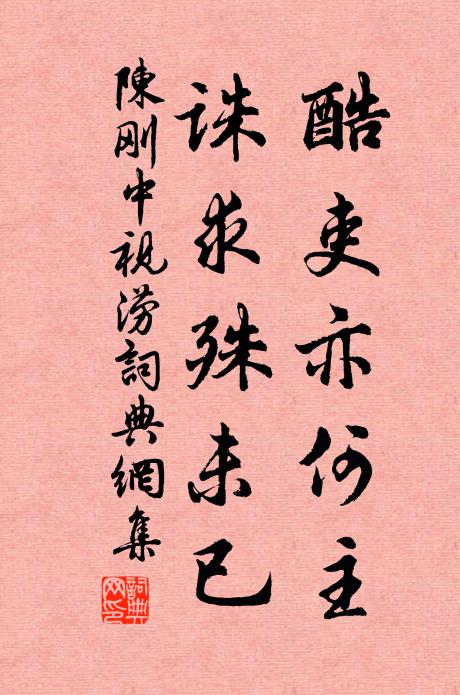 酷吏亦何主
誅求殊未已
陳剛中視澇詞典網集
詞典網印